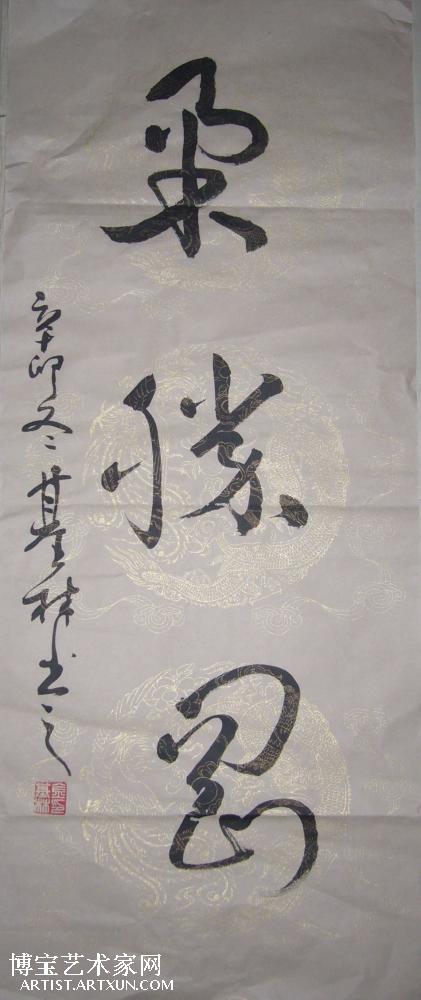 柔勝剛
辛卯冬基林书之
博宝艺术家网
ARTIST.ARTXUN.COM